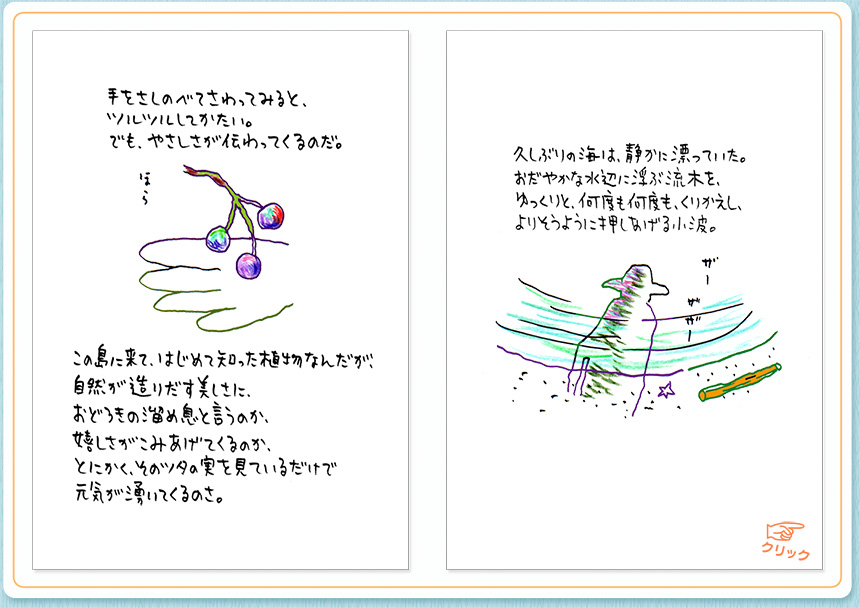 手をさしのべてさわってみると、
ツルツルしてかたい。
でも、やさしさが伝わってくるのだ。
ほら
この島に来て、はじめて知った植物なんだが、
自然が造りだす美しさに、
おどろきの溜め息と言うのか、
嬉しさがこみあげてくるのか、
とにかく、そのツタの実を見ているだけで
元気が湧いてくるのさ。
久しぶりの海は、静かに漂っていた。
おだやかな水辺に浮ぶ流木を、
ゆっくりと、何度も何度も、くりかえし、
よりそうように押しあげる小波。
ザー
ザザー
クリック